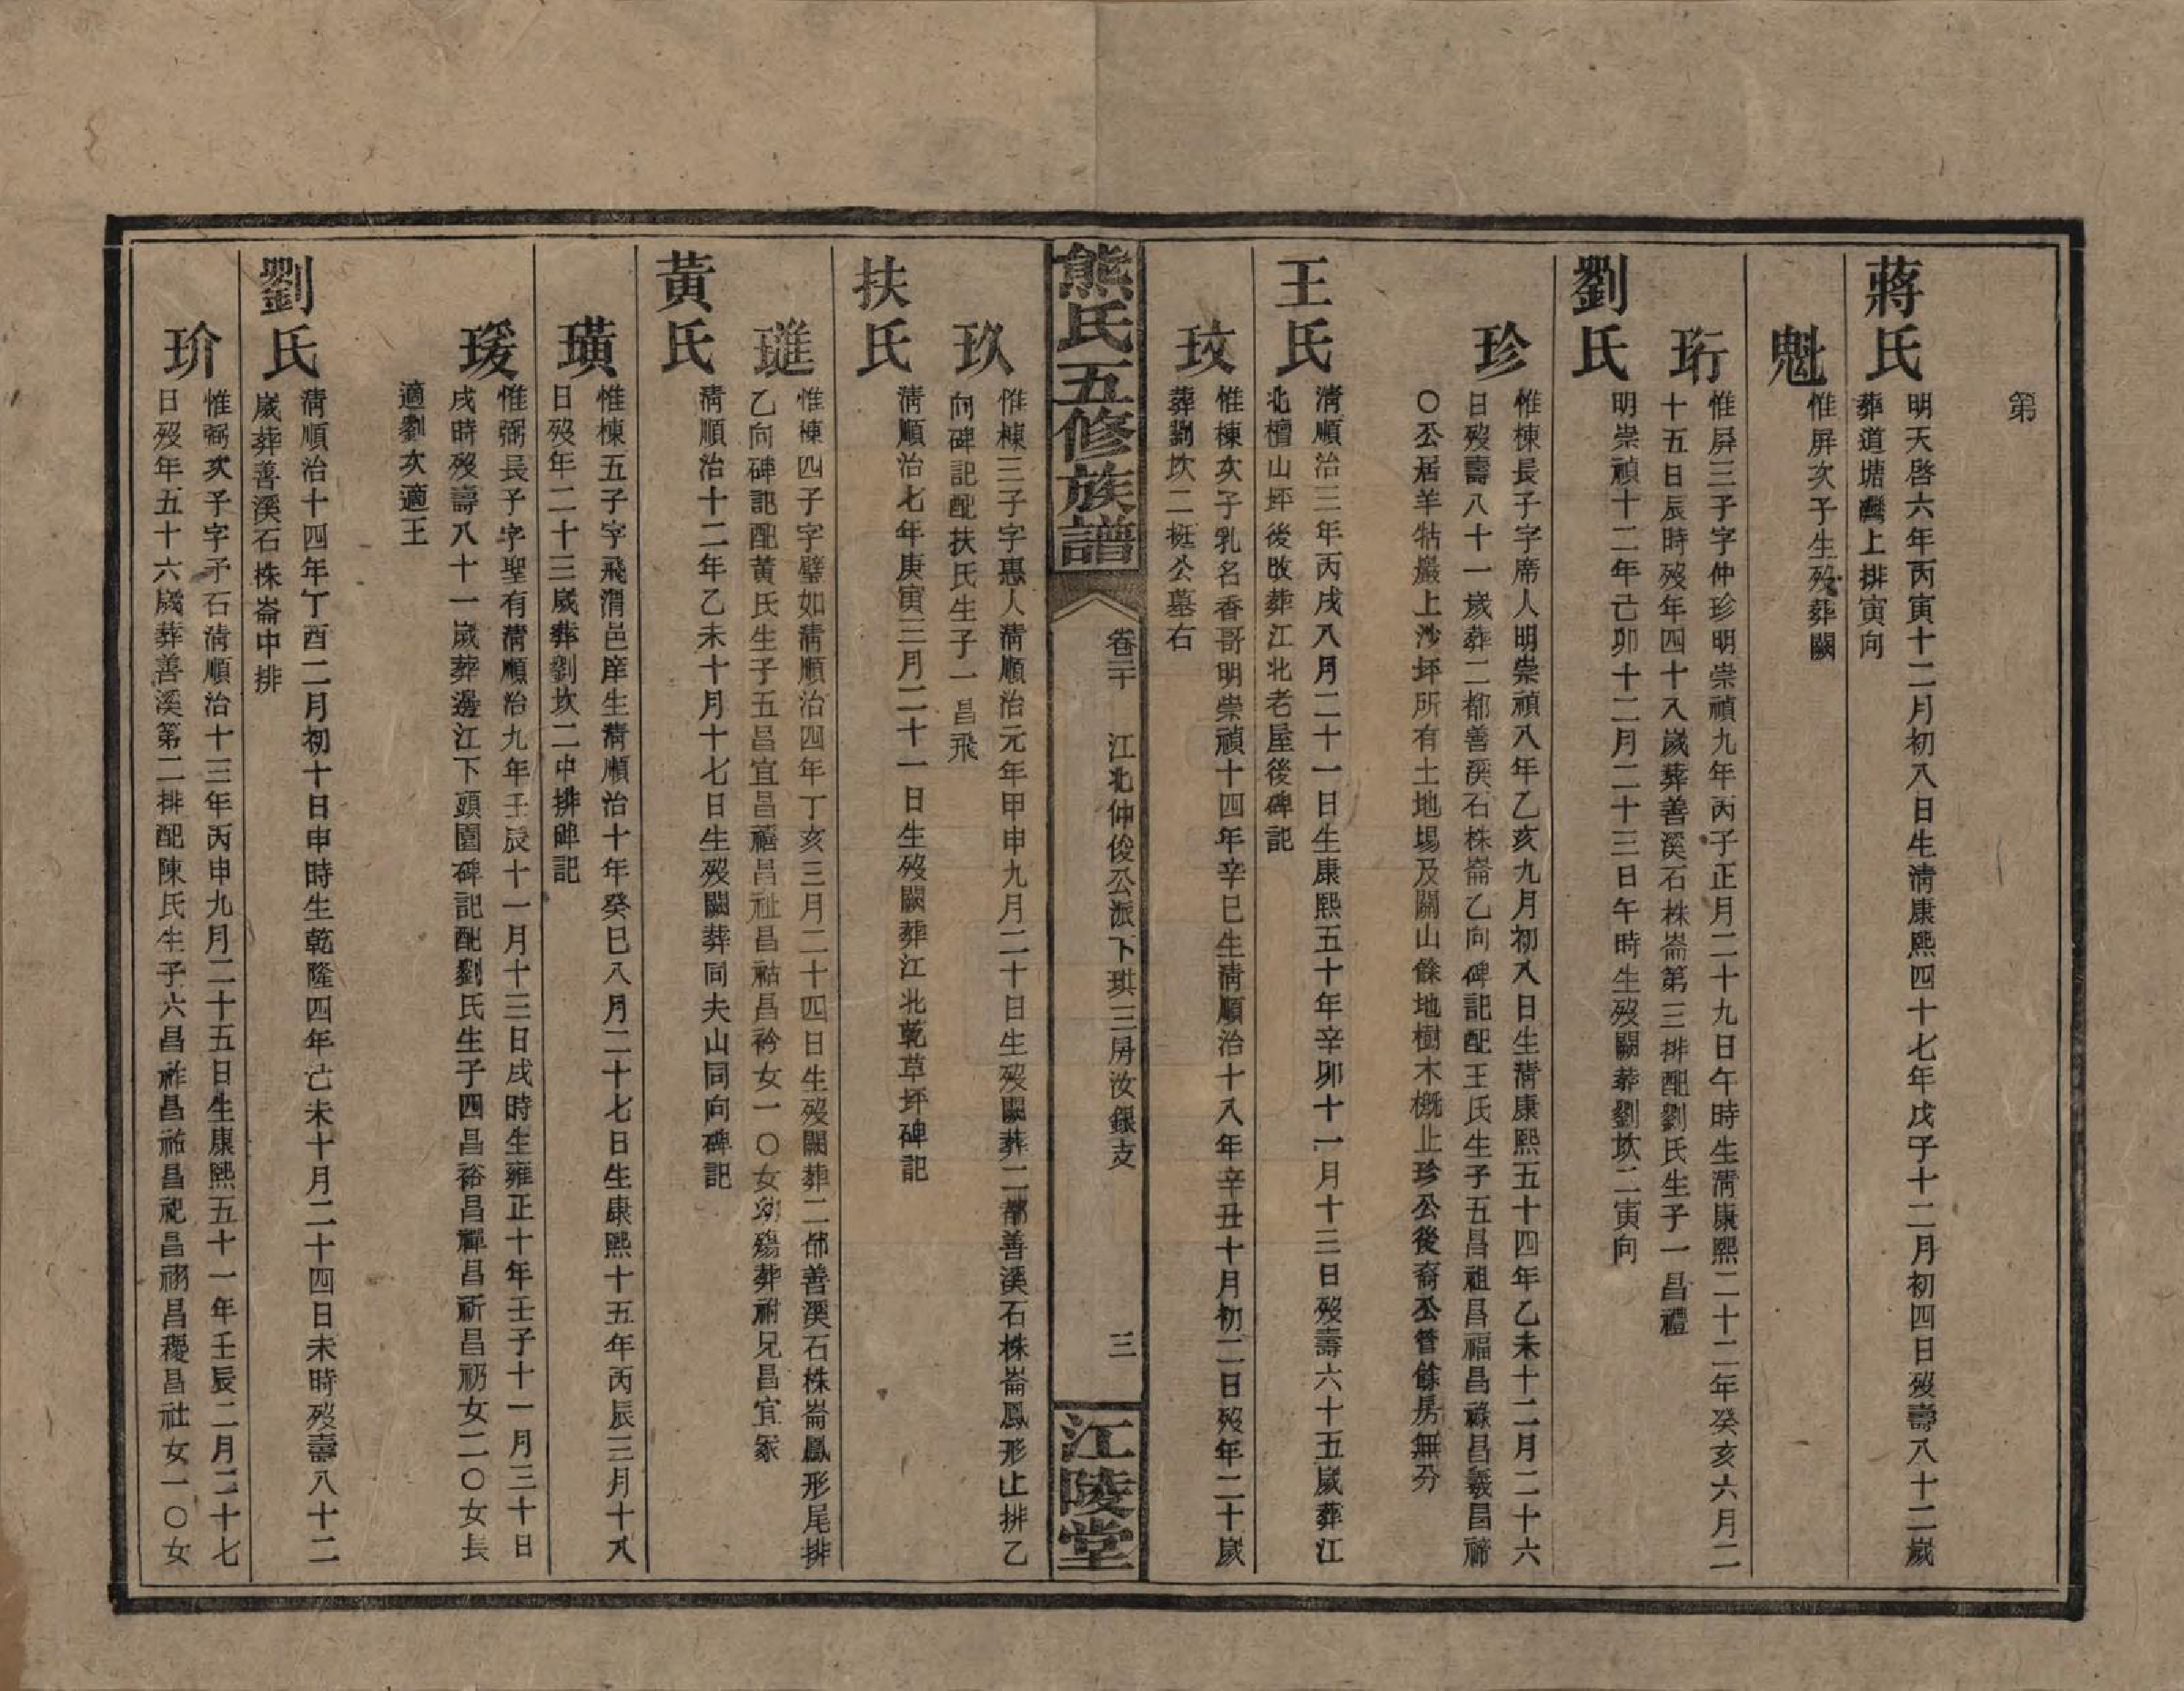 第
蔣氏
明天啓六年丙寅十二月初八日生淸康熙四十七年戊子十二月初四日歿壽八十二歲
葬道塘灣上排寅向
魁
惟屏次子生歿葬闕
珩
惟屏三子字仲珍明崇禎九年丙子正月二十九日午時生淸康熙二十二年癸亥六月二
十五日辰時歿年四十八歲葬善溪石株崙第三排配劉氏生子一昌禮
劉氏
明崇禎十二年己卯十二月二十三日午時生歿闕葬劉坎二寅向
珍
惟棟長子字席人明崇禎八年乙亥九月初八日生淸康熙五十四年乙未十二月二十六
日歿壽八十一歲葬二都善溪石株崙乙向碑記配王氏生子五昌祖昌福昌祿昌羲昌禘
〇公居羊牯巖上沙坪所有土地塲及關山餘地樹木槪止珍公後裔公管餘房無分
王氏
淸順治三年丙戌八月二十一日生康熙五十年辛卯十一月十三日歿壽六十五歲葬江
北檀山坪後改葬江北老屋後碑記
玟
惟棟次子乳名香哥明崇禎十四年辛巳生淸順治十八年辛丑十月初二日歿年二十歲
葬劉坎二梃公墓右
熊氏五修族譜
卷三十　江北仲俊公派下珙三房汝銀支　三
江陵堂
玖
惟棟三子字惠人淸順治元年甲申九月二十日生歿闕葬二都善溪石株崙鳳形止排乙
向碑記配扶氏生子一昌飛
扶氏
淸順治七年庚寅三月二十一日生歿闕葬江北乾草坪碑記
璡
惟棟四子字璧如淸順治四年丁亥三月二十四日生歿闕葬二都善溪石株崙鳳形尾排
乙向碑記配黃氏生子五昌宜昌禧昌祉昌祜昌衿女一〇女幼殤葬祔兄昌宜冢
黃氏
淸順治十二年乙未十月十七日生歿闕葬同夫山同向碑記
璜
惟棟五子字飛渭邑庠生淸順治十年癸巳八月二十七日生康熙十五年丙辰三月十八
日歿年二十三歲葬劉坎二中排碑記
瑗
惟弼長子字聖有淸順治九年壬辰十一月十三日戌時生雍正十年壬子十一月三十日
戌時歿壽八十一歲葬邊江下頭園碑記配劉氏生子四昌裕昌禪昌祈昌礽女二〇女長
適劉次適王
劉氏
淸順治十四年丁酉二月初十日申時生乾隆四年己未十月二十四日未時歿壽八十二
歲葬善溪石株崙中排
玠
惟弼次子字予石淸順治十三年丙申九月二十五日生康熙五十一年壬辰二月二十七
日歿年五十六歲葬善溪第二排配陳氏生子六昌祚昌祐昌祀昌祤昌稷昌社女一〇女